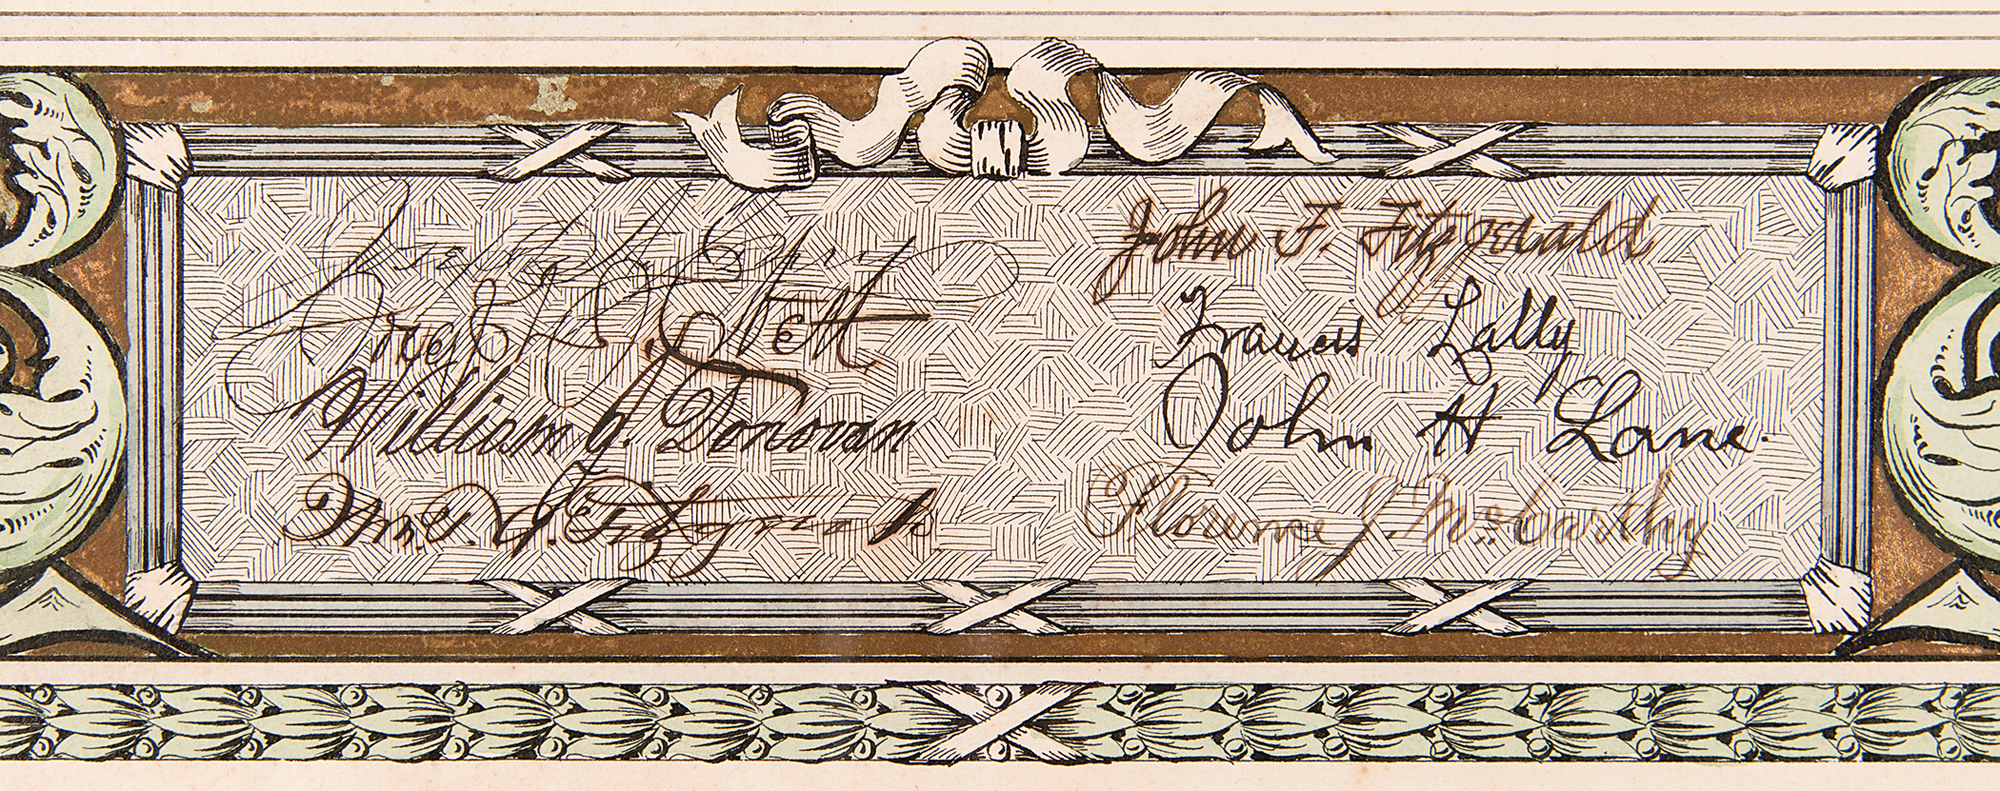 Joseph A. Conry
William J. Donovan
Wm. T. A. Fitzgerald.
John F. Fitzgerald
Francis Lally
John H Lane.
Florence J. McCarthy